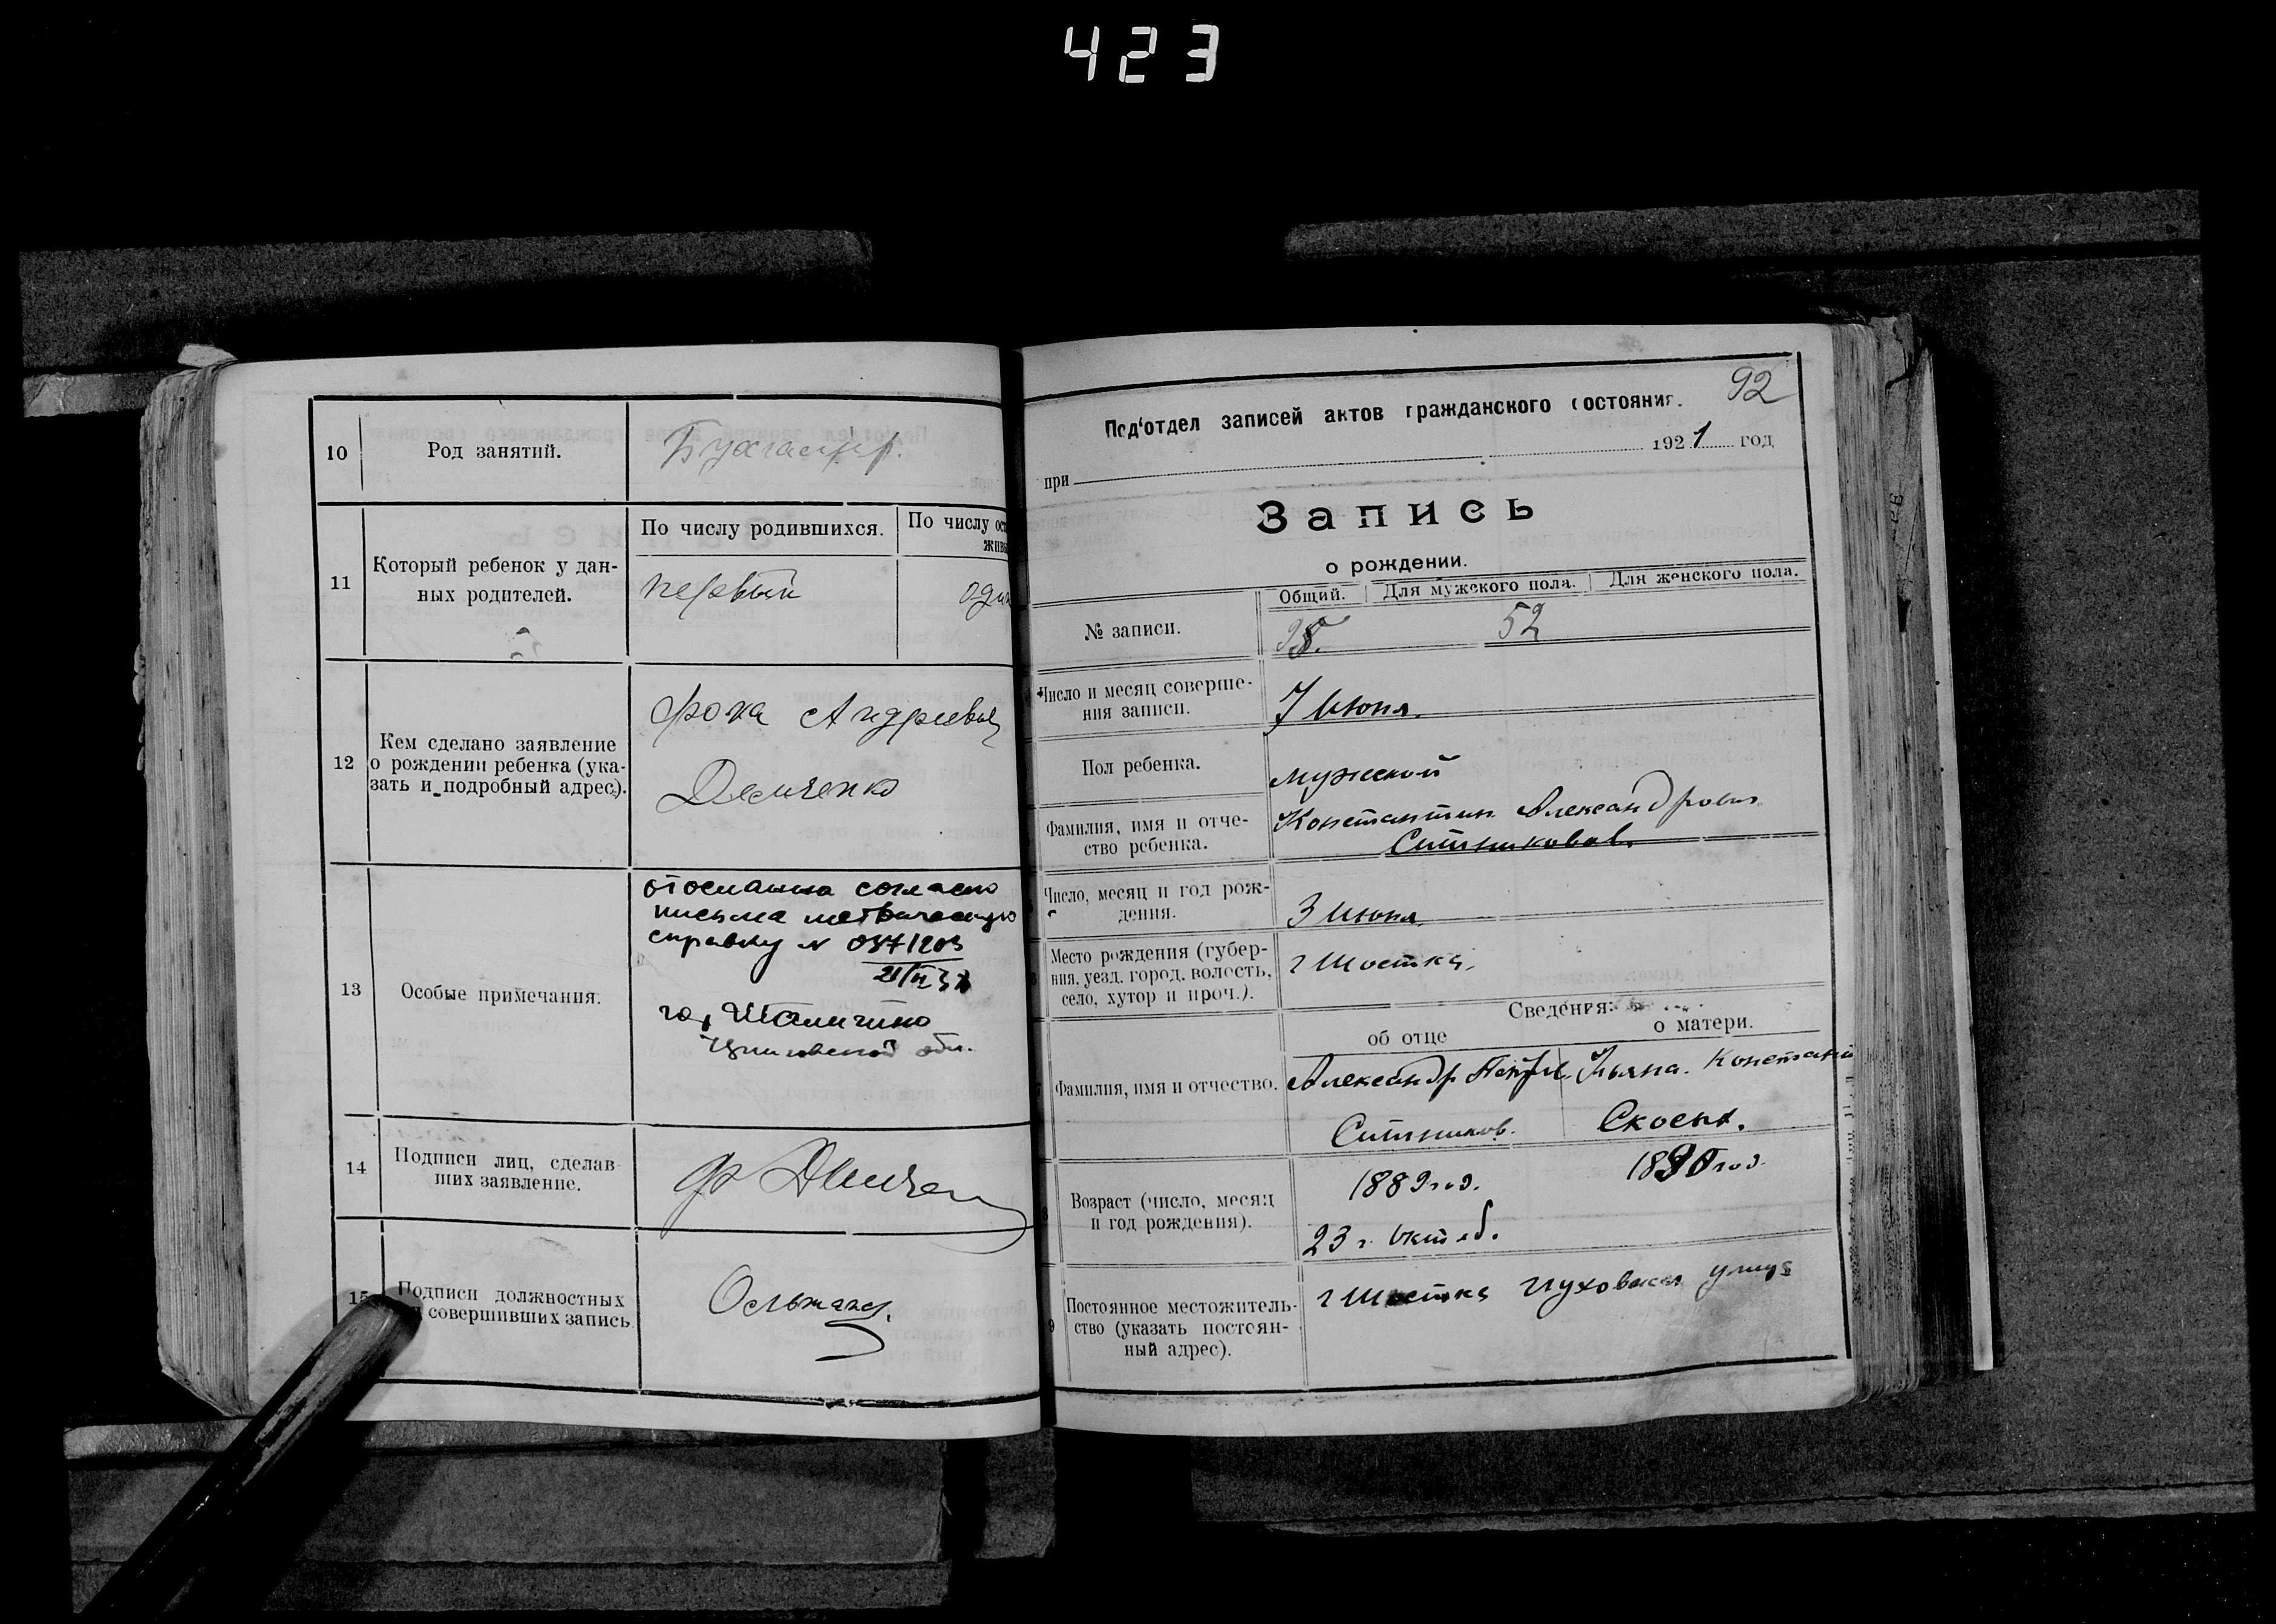 423
10 Род занятий. Бухгалтер.
11 Который ребенок у дан-
ных родителей.
По числу родившихся. По числу ос
живы
первый один
12 Кем сделано заявление
о рождении ребенка (ука-
зать и подробный адрес).
Фома Андреевич
Демченко
13 Особые примечания.
отослана согласно
письма метрическую
справку № 0371203
21/VI 37
гор
обл.
14 Подписи лиц, сделав-
ших заявление.
Ф Демчен
15 Подписи должностных
совершивших запись.
92
Под'отдел записей актов гражданского состояния.
при 1921 год
Запись
о рождении.
Общий. Для мужского пола. Для женского пола.
№ записи. 52
Число и месяц соверше-
ния записи.
7 июня.
Пол ребенка. мужской
Фамилия, имя и отче-
ство ребенка.
Константин Александрович
Ситников.
Число, месяц и год рож-
дения.
3 июня
Место рождения (губер-
ния, уезд, город, волость,
село, хутор и проч.).
г Шостка,
Сведения:
об отце о матери.
Фамилия, имя и отчество.
Александр Петр. Ульяна. Констант
Ситников.
Возраст (число, месяц
и год рождения).
1889 год.
23 г. октяб.
9 Постоянное местожитель-
ство (указать постоян-
ный адрес).
г Шостка Глуховская улица